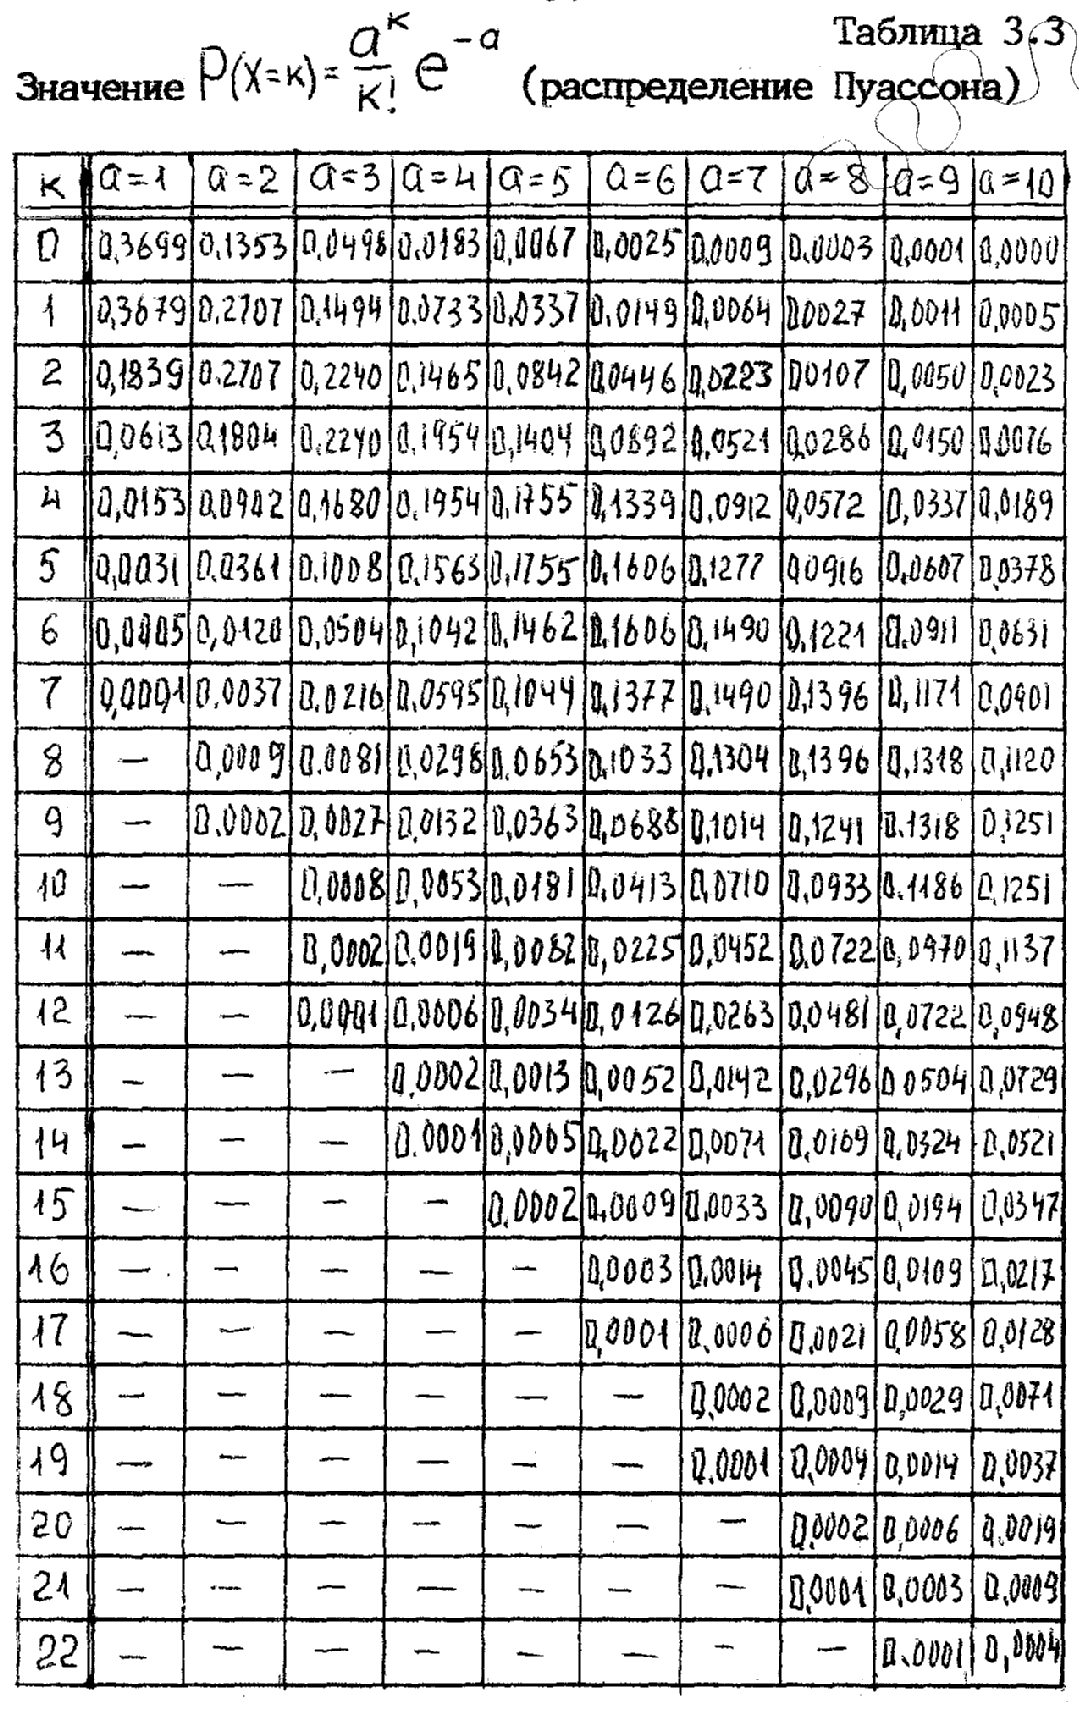 Таблица 3.3
Значение P(X=к)= a^к/к! e^-a (распределение Пуассона)
к a=1 a=2 a=3 a=4 a=5 a=6 a=7 a=8 a=9 a=10
0 0,3699 0.1353 0,0498 0,0183 0,0067 0,0025 0,0009 0.0003 0,0001 0,0000
1 0,3679 0.2707 0.1494 0.0733 0,0337 0.0149 0,0064 00027 0,0011 0,0005
2 0,1839 0.2707 0,2240 0,1465 0,0842 00446 0,0223 00107 0,0050 0,0023
3 0,0613 0,1804 0,2240 0,1954 0,1404 0,0892 0,0521 0,0286 0,0150 0,0076
4 0,0153 0,0902 0,1680 0,1954 0,1755 0,1339 0,0912 0,0572 0,0337 0,0189
5 0,0031 0.0361 0.1008 0,1563 0,1755 0,1606 0,1277 00916 0,0607 0,0378
6 0,0005 0,0120 0,0504 0,1042 0,1462 0,1606 0,1490 0,1221 0.0911 0,0631
7 0,0001 0,0037 0,0216 0,0595 0,1044 0,1377 0,1490 0,1396 0,1171 0,0901
8 — 0,0009 0.0081 0,0298 0.0653 0,1033 0,1304 0,1396 0,1318 0,1120
9 — 0.0002 0,0027 0,0132 0,0363 0,0688 0,1014 0,1241 0.1318 0,1251
10 — — 0,0008 0,0053 0,0181 0,0413 0,0710 0,0933 0.1186 0,1251
11 — — 0,0002 0.0019 0,0082 0,0225 0,0452 0.0722 0,0970 0,1137
12 — — 0,0001 0,0006 0,0034 0,0126 0,0263 0,0481 0,0722 0,0948
13 — — — 0,0002 0,0013 0,0052 0,0142 0,0296 0 0504 0,0729
14 — — — 0.0001 0,0005 0,0022 0,0071 0,0169 0,0324 0,0521
15 — — — — 0.0002 0,0009 0,0033 0,0090 0,0194 0,0347
16 — — — — — 0,0003 0.0014 0,0045 0,0109 0,0217
17 — — — — — 0,0001 0,0006 0,0021 0,0058 0,0128
18 — — — — — — 0,0002 0,0009 0,0029 0,0071
19 — — — — — — 0.0001 0,0004 0,0014 0,0037
20 — — — — — — — 0,0002 0,0006 0,0019
21 — — — — — — — 0,0001 0,0003 0,0009
22 — — — — — — — — 0.0001 0,0004